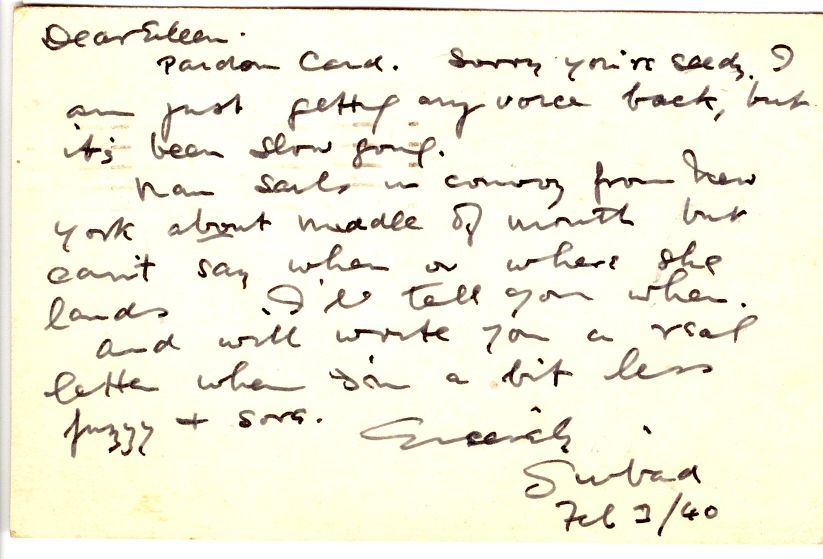 Dear Eileen.
Pardon Card. Sorry you're seedy. I
am just getting my voice back, but
it's been slow going.
Nan sails in convoy from New
York about middle of month but
can't say when or where she
lands I'll tell you when.
and will write you a real
letter when I'm a bit less
fuzzy + sore.
Sincerely
Sinbad
Feb 3/40